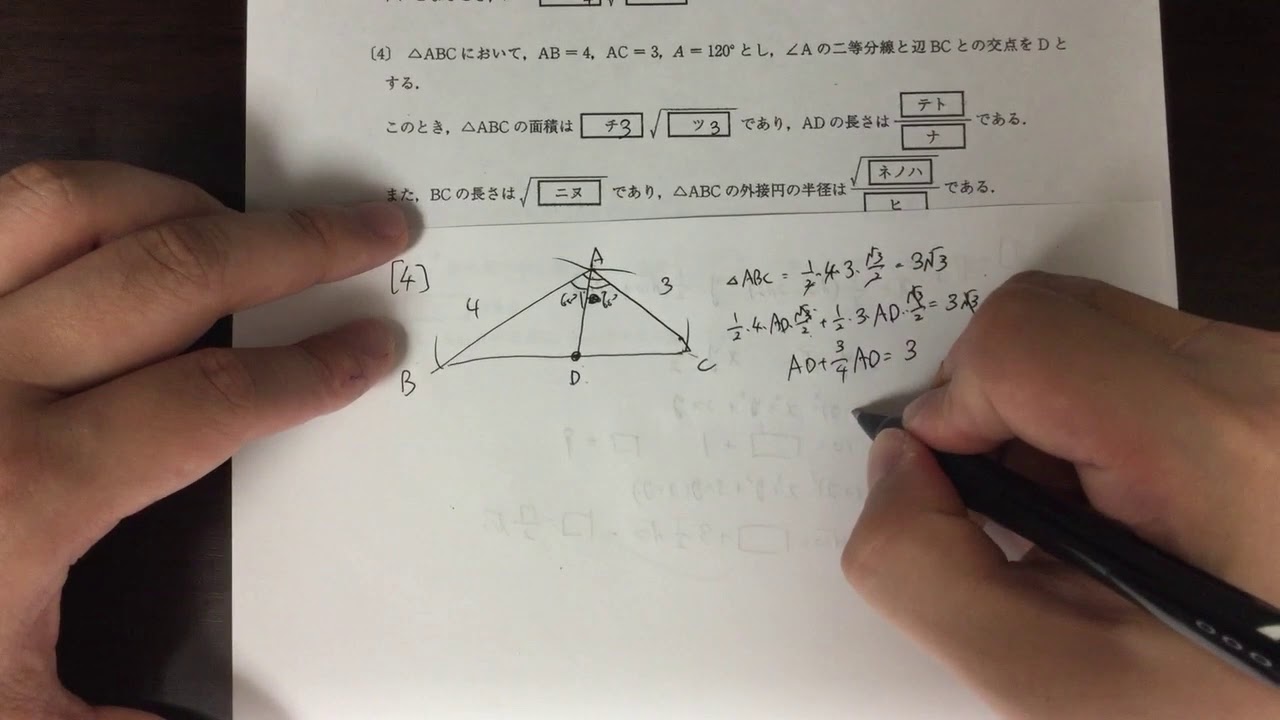 〔4〕 △ABCにおいて，AB＝4，AC＝3，A＝120°とし，∠Aの二等分線と辺BCとの交点をDと
する．
このとき，△ABCの面積は チ3 √ ツ3 であり，ADの長さは テト/ナ である．
また，BCの長さは √ ニヌ であり，△ABCの外接円の半径は √ネノハ/ヒ である．
[4]
A
4
3
60° 60°
B
D
C
△ABC = 1/2·4·3·√3/2 = 3√3
1/2·4·AD·√3/2 + 1/2·3·AD·√3/2 = 3√3
AD + 3/4 AD = 3